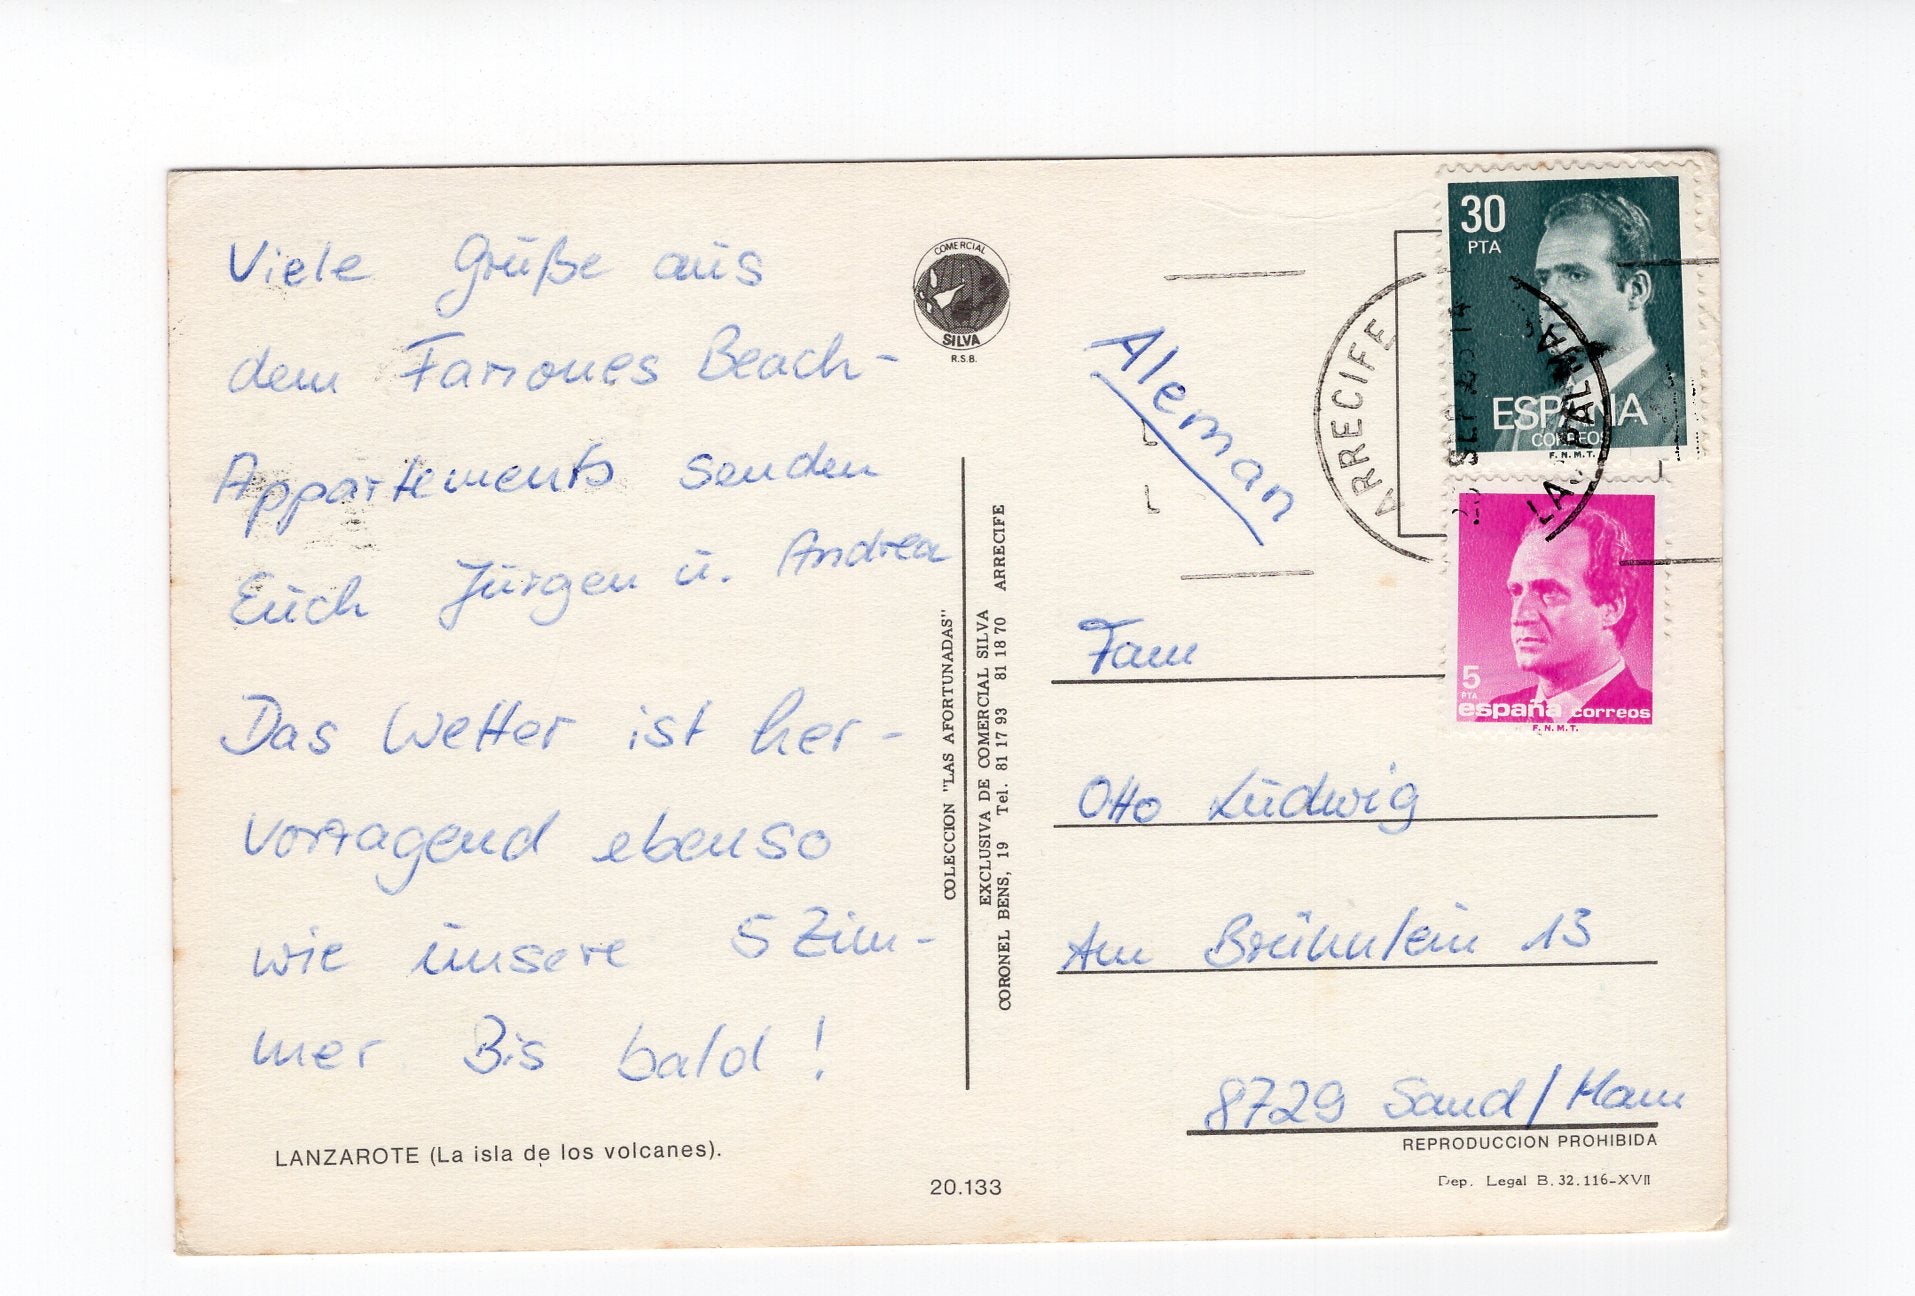 Viele Grüße aus
dem Fariones Beach-
Appartements senden
Euch Jürgen u. Andrea
Das Wetter ist her-
vorragend ebenso
wie unsere 5 Zim-
mer Bis bald!
LANZAROTE (La isla de los volcanes).
20.133
COMERCIAL
SILVA
R.S.B.
COLECCION "LAS AFORTUNADAS"
EXCLUSIVA DE COMERCIAL SILVA
CORONEL BENS, 19 Tel. 81 17 93 81 18 70 ARRECIFE
Aleman
ARRECIFE
LAS PALMAS
30
PTA
ESPAÑA
CORREOS
F.N.M.T.
5
PTA
españa correos
F.N.M.T.
Fam
Otto Ludwig
Am Brünnlein 13
8729 Sand/Main
REPRODUCCION PROHIBIDA
Dep. Legal B. 32.116-XVII